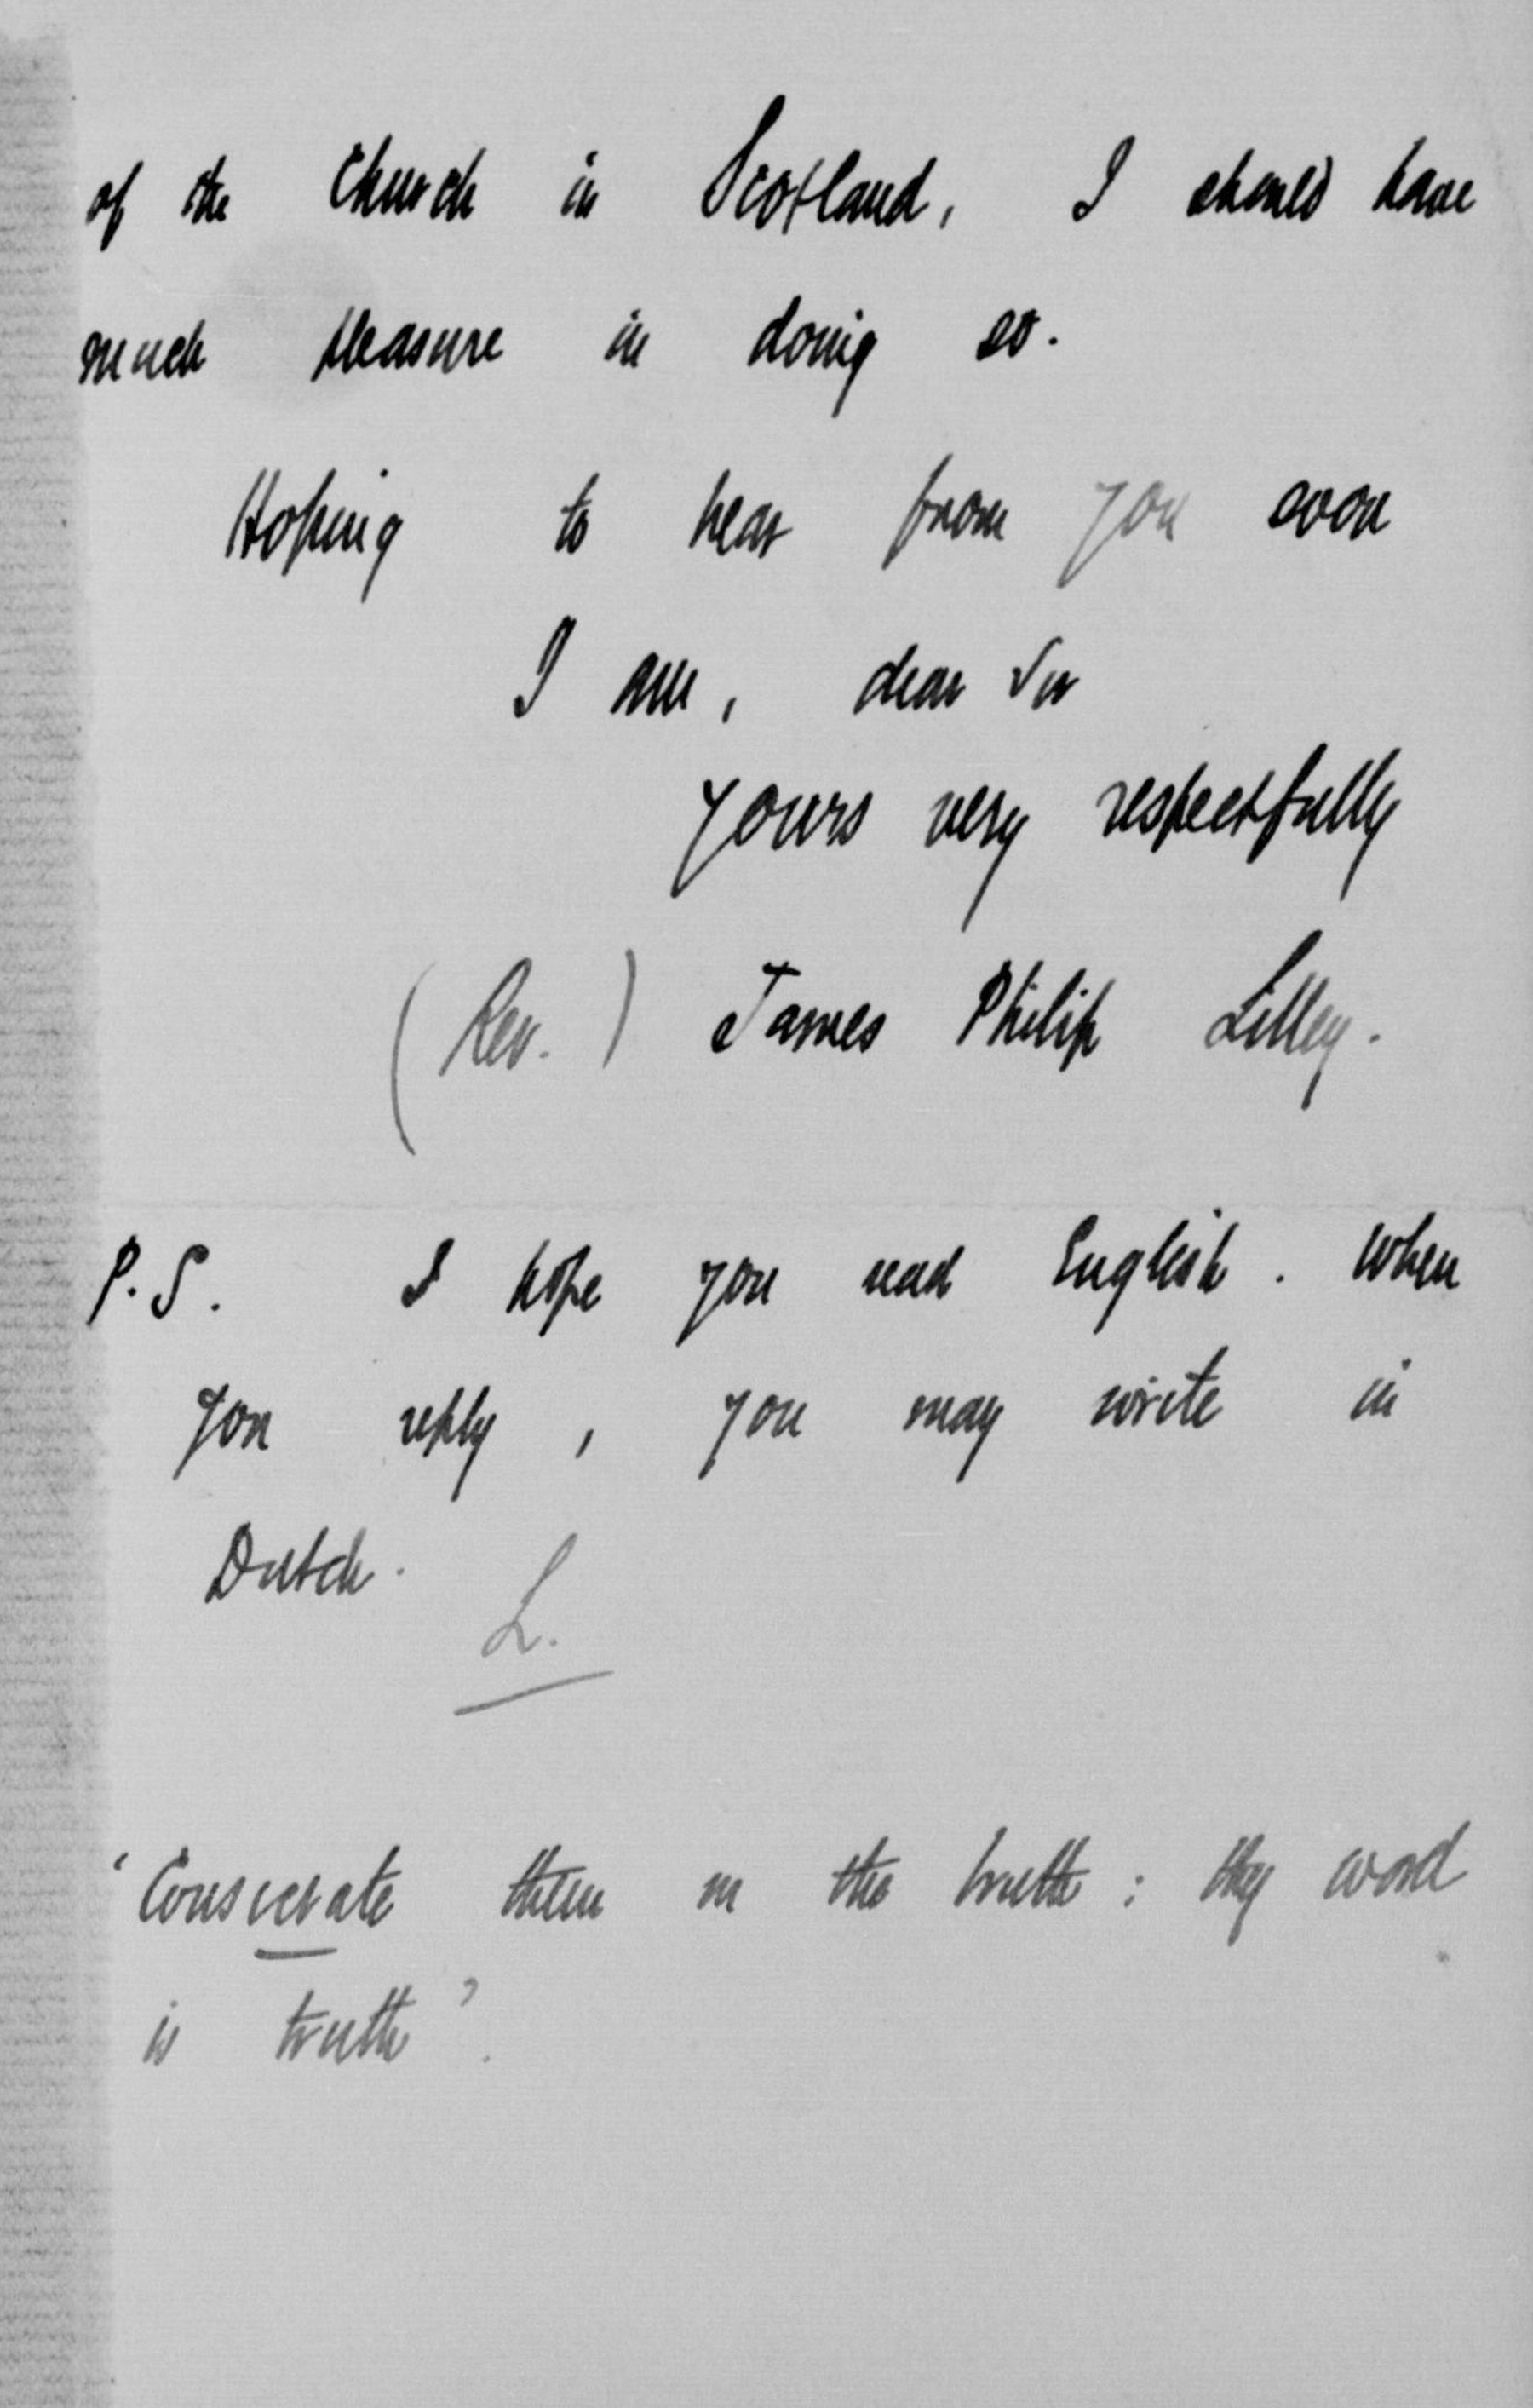 of the Church in Scotland, I should have
much pleasure in doing so.
Hoping to hear from you soon
I am, dear Sir
yours very respectfully
(Rev.) James Philip Lilley.
P.S. I hope you read English. When
you reply, you may write in
Dutch.
L.
'Consecrate them in the truth: thy word
is truth'.